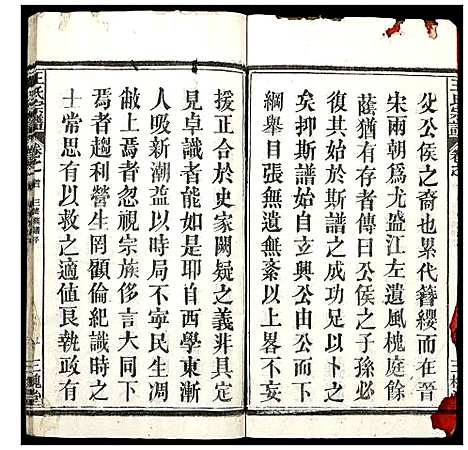 公侯之裔也累代簪纓而在晉
宋兩朝為尤盛江左遺風槐庭餘
蔭猶有存者傳曰公侯之子孫必
復其始於斯譜之成功足以卜之
矣抑斯譜始自立興公由公而下
綱舉目張無遺無紊以上畧
援正合於史家闕疑之義非具定
見卓識者能如是耶自西學東漸
人吸新潮益以時局不寧民德日
敝上焉者忽視宗族侈言大同下
焉者趨利營生罔顧倫紀識時之
士常思有以救之適值良執政有
王氏宗譜
三槐堂